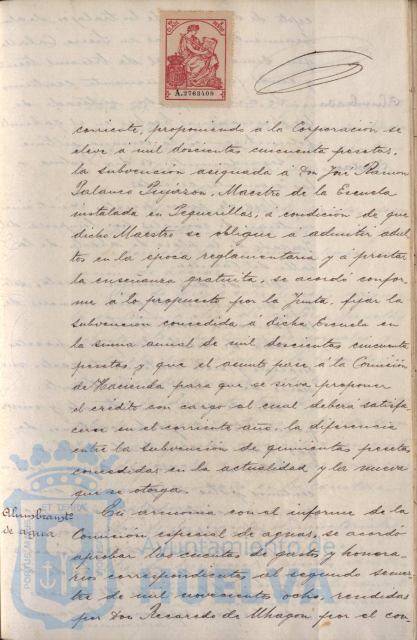 A.2763409
corriente, proponiendo á la Corporación se
eleve á mil doscientas cincuenta pesetas,
la subvencion asignada á Don José Ramon
Palanco Pejaron, Maestro de la Escuela
instalada en Peguerillas, á condición de que
dicho Maestro se obligue á admitir adul
tos en la época reglamentaria y á prestar
la enseñanza gratuita, se acordó confor
me á lo propuesto por la Junta, fijar la
subvencion concedida á dicha Escuela en
la suma anual de mil doscientas cincuenta
pesetas y que el asunto pase á la Comisión
de Hacienda para que se sirva proponer
el crédito con cargo al cual deberá satisfa
cerse en el corriente año, la diferencia
entre la subvencion de quinientas pesetas
concedidas en la actualidad y la nueva
que se otorga.
Alumbramto
de agua
En armonia con el informe de la
Comisión especial de aguas, se acordó
aprobar las cuentas de gastos y honora
rios correspondientes al segundo semes
tre de mil novecientos ocho, rendidas
por Don Recaredo de Uhagon, por el con
Ayuntamiento de
HUELVA